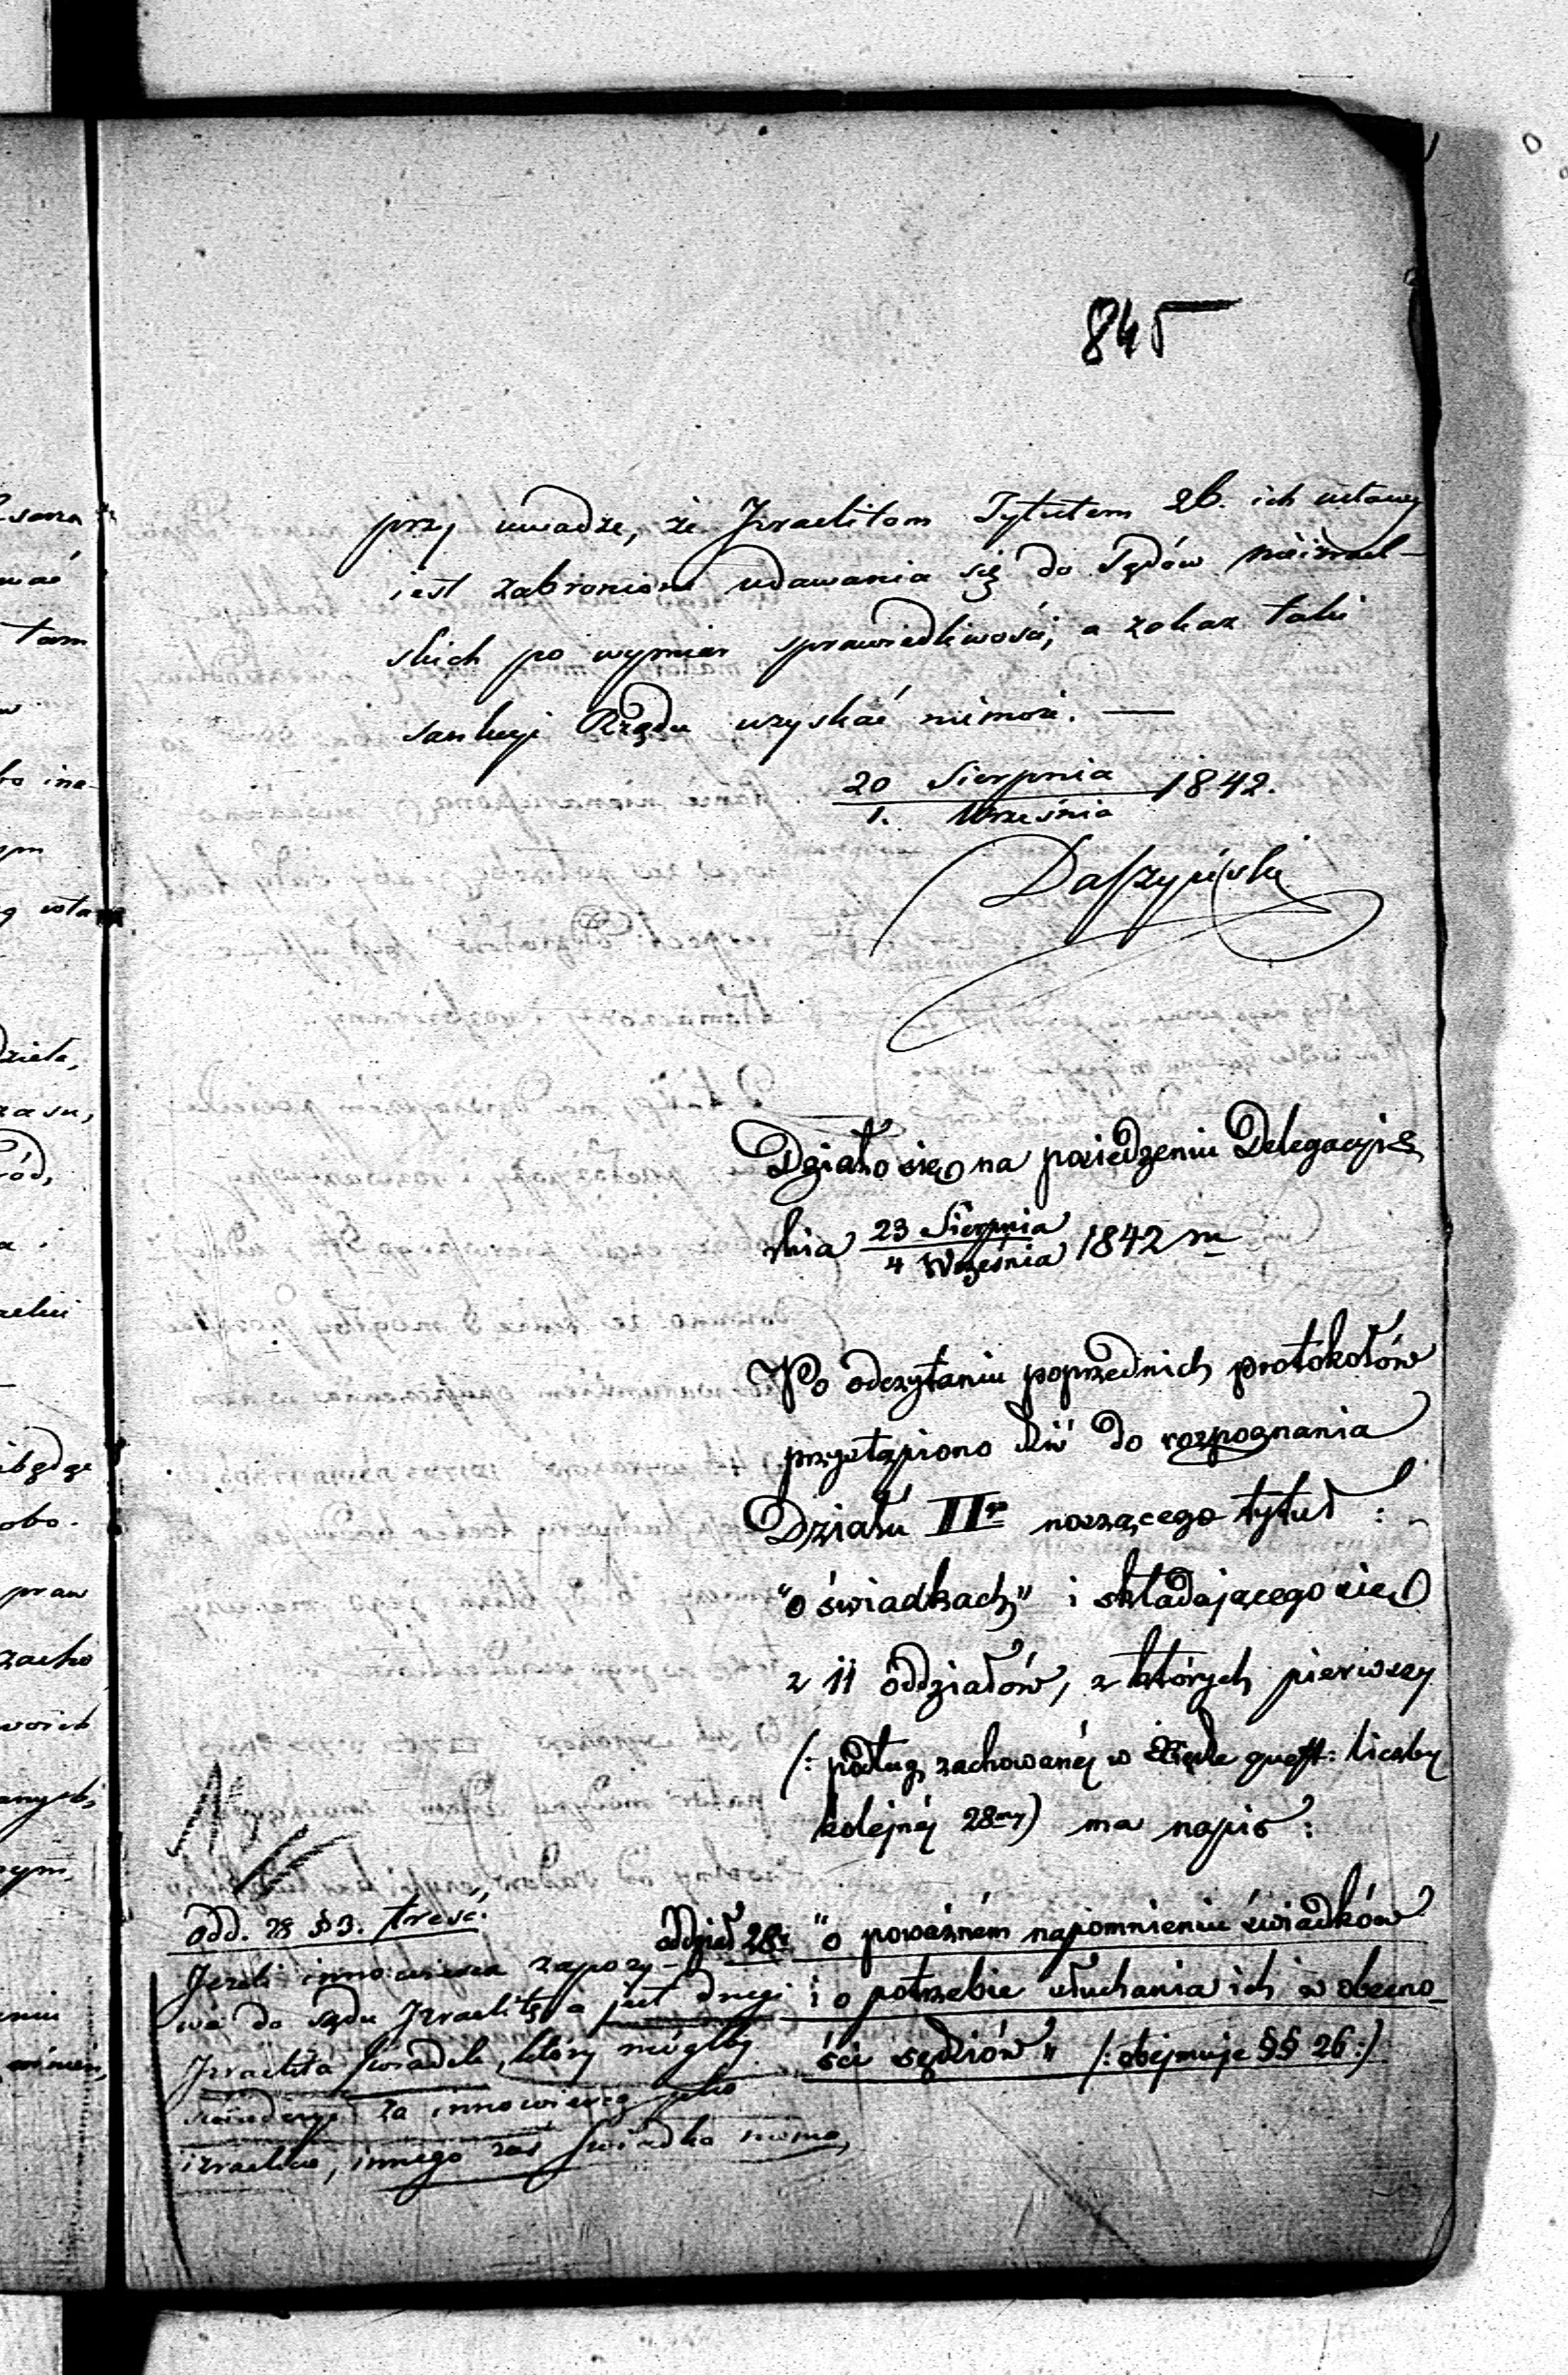 845
przy uwadze, że Izraelitom Tytułem 26. ich ustawy
jest zabronione udawania się do Sądów nieizrael-
skich po wymiar sprawiedliwości, a zakaz taki
sankcyi Rządu uzyskać niemoże. —
20 Sierpnia
1. Września 1842.
Daszyński
Działo się na posiedzeniu Delegacyi
dnia 23 Sierpnia
4 Września 1842 r.
Po odczytaniu poprzednich protokołów
przystąpiono dziś do rozpoznania
Działu IIgo noszącego tytuł:
"o świadkach" i składającego się
z 11 oddziałów, z których pierwszy
(: podług zachowanéj w dziele quest: liczby
kolejnéj 28my) ma napis:
oddział 28y "o poważném napomnieniu świadków
i o potrzebie słuchania ich w obecno-
ści sędziów" (: obejmuje §§ 26:)
odd. 28 § 3. treść.
Jeżeli innowierca zapozy-
wa do sądu Izraelitę a jest drugi
Izraelita świadek, który mógłby
za innowiercą jako
izraelicie, innego zaś świadka niema,